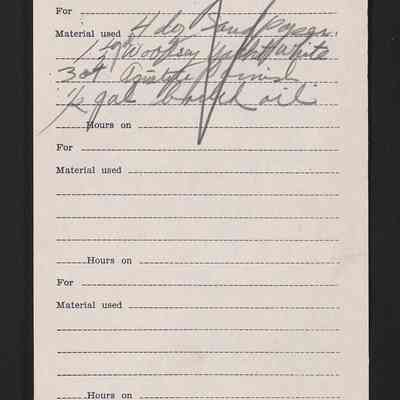 For
Material used 4 doz Sand Paper
1 gal Woolsey Yacht White
3 qt
1/2 gal boiled oil
Hours on
For
Material used
Hours on
For
Material used
Hours on